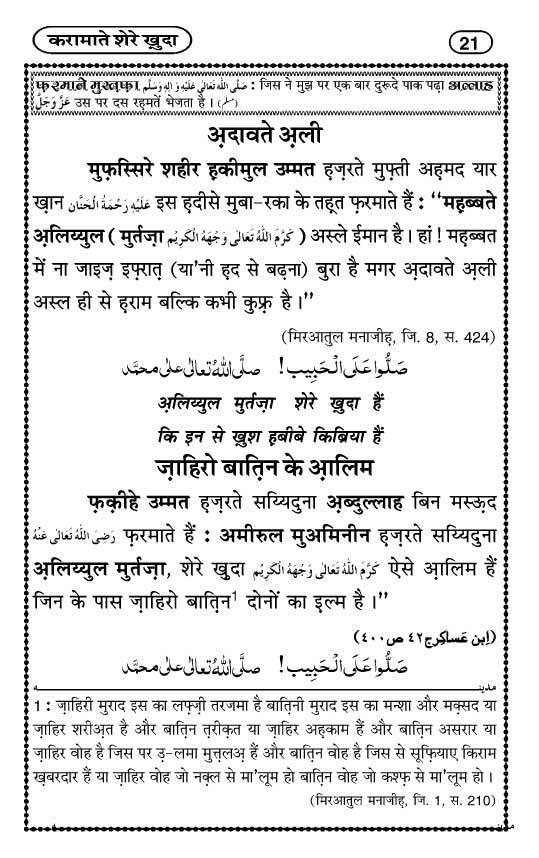 करामाते शेरे ख़ुदा
21
फ़रमाने मुस्तफ़ा صَلَّى اللّٰهُ تَعَالٰى عَلَيْهِ وَاٰلِهٖ وَسَلَّم : जिस ने मुझ पर एक बार दुरूदे पाक पढ़ा अल्लाह
عَزَّ وَجَلَّ उस पर दस रहमतें भेजता है । (مسلم)
अ़दावते अ़ली
मुफ़स्सिरे शहीर ह़कीमुल उम्मत ह़ज़रते मुफ़्ती अह़मद यार
ख़ान عَلَيْهِ رَحْمَةُ الْحَنَّان इस ह़दीसे मुबा-रका के तह़्त फ़रमाते हैं : ‘‘मह़ब्बते
अ़लिय्युल ( मुर्तज़ा كَرَّمَ اللّٰهُ تَعَالٰى وَجْهَهُ الْكَرِيْم ) अस्ले ईमान है । हां ! मह़ब्बत
में ना जाइज़ इफ़्रात़ (या'नी ह़द से बढ़ना) बुरा है मगर अ़दावते अ़ली
अस्ल ही से ह़राम बल्कि कभी कुफ़्र है ।’’
(मिरआतुल मनाजीह़, जि. 8, स. 424)
صَلُّوْا عَلَى الْحَبِيْب ! صلَّى اللّٰهُ تعالٰى علٰى محمَّد
अ़लिय्युल मुर्तज़ा शेरे ख़ुदा हैं
कि इन से ख़ुश ह़बीबे किब्रिया हैं
ज़ाहिरो बात़िन के आ़लिम
फ़क़ीहे उम्मत ह़ज़रते सय्यिदुना अ़ब्दुल्लाह बिन मस्ऊ़द
رَضِىَ اللّٰهُ تَعَالٰى عَنْهُ फ़रमाते हैं : अमीरुल मुअमिनीन ह़ज़रते सय्यिदुना
अ़लिय्युल मुर्तज़ा, शेरे ख़ुदा كَرَّمَ اللّٰهُ تَعَالٰى وَجْهَهُ الْكَرِيْم ऐसे आ़लिम हैं
जिन के पास ज़ाहिरो बात़िन¹ दोनों का इ़ल्म है ।’’
(اِبن عَساكِر ج ٤٢ ص ٤٠٠)
صَلُّوْا عَلَى الْحَبِيْب ! صلَّى اللّٰهُ تعالٰى علٰى محمَّد
مدينه
1 : ज़ाहिरी मुराद इस का लफ़्ज़ी तरजमा है बात़िनी मुराद इस का मन्शा और मक़्सद या
ज़ाहिर शरीअ़त है और बात़िन त़रीक़त या ज़ाहिर अह़काम हैं और बात़िन असरार या
ज़ाहिर वोह है जिस पर उ़-लमा मुत्तलअ़ हैं और बात़िन वोह है जिस से सूफ़ियाए किराम
ख़बरदार हैं या ज़ाहिर वोह जो नक़्ल से मा'लूम हो बात़िन वोह जो कश्फ़ से मा'लूम हो ।
(मिरआतुल मनाजीह़, जि. 1, स. 210)